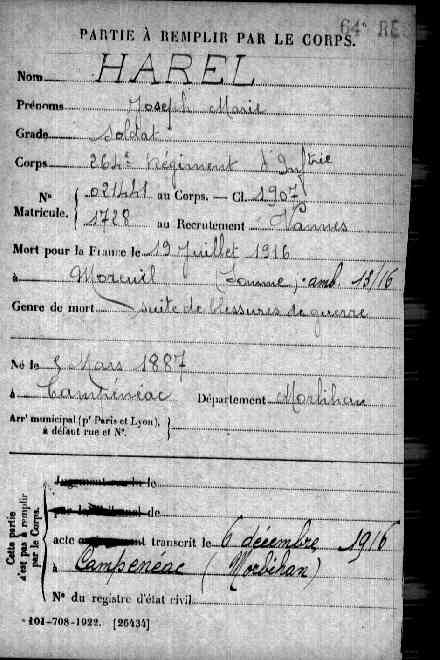 64e RE
PARTIE À REMPLIR PAR LE CORPS.
Nom HAREL
Prénoms Joseph Marie
Grade Soldat
Corps 264e Régiment d'Inftrie
N° Matricule. { 021441 au Corps. — Cl. 1907
1728 au Recrutement Vannes
Mort pour la France le 19 Juillet 1916
à Moreuil (Somme) amb. 13/16
Genre de mort suite de blessures de guerre
Né le 5 Mars 1887
à Campénéac Département Morbihan
Arrt municipal (pr Paris et Lyon),
à défaut rue et N°.
Cette partie n'est pas à remplir par le Corps.
Jugement rendu le
par le Tribunal de
acte transcrit le 6 décembre 1916
à Campénéac (Morbihan)
N° du registre d'état civil
101-708-1922. [26434]